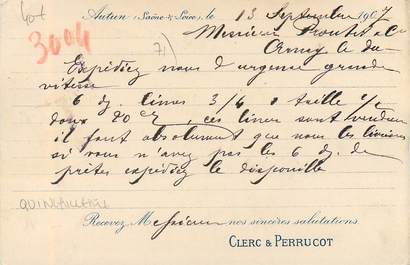 404
3004
Autun (Saône & Loire), le 13 Septembre 1907
71)
Messieurs Proutat & Cie
Arnay le duc
Expédiez nous d'urgence grande
vitesse
6 dz. limes 3/6 1 taille 1/2
douce 20 c/m, ces limes sont vendues
il faut absolument que nous les livrions
si vous n'avez pas les 6 dz. de
prêtes expédiez le disponible
QUINCAILLERIE
Recevez, Messieurs nos sincères salutations.
CLERC & PERRUCOT